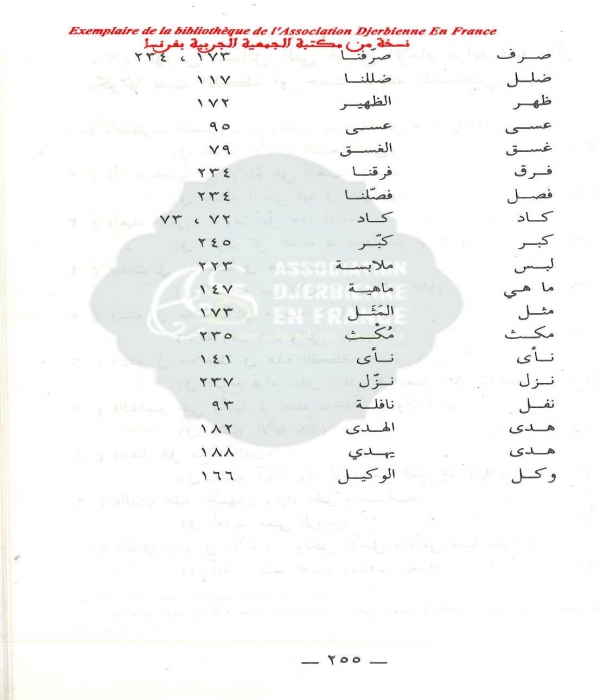 Exemplaire de la bibliothèque de l'Association Djerbienne En France
نسخة من مكتبة الجمعية الجربية بفرنسا
صرف صرّفنا ١٧٣ ، ٢٣٤
ضلل ضللنا ١١٧
ظهر الظهير ١٧٢
عسى عسى ٩٥
غسق الغسق ٧٩
فرق فرقنا ٢٣٤
فصل فصّلنا ٢٣٤
كاد كاد ٧٢ ، ٧٣
كبر كبّر ٢٤٥
لبس ملابسة ٢٢٣
ما هي ماهية ١٤٧
مثل المَثَل ١٧٣
مكث مُكْث ٢٣٥
نأى نأى ١٤١
نزل نزّل ٢٣٧
نفل نافلة ٩٣
هدى الهدى ١٨٢
هدى يهدي ١٨٨
وكل الوكيل ١٦٦
ASSOCIATION
DJERBIENNE
EN FRANCE
— ٢٥٥ —